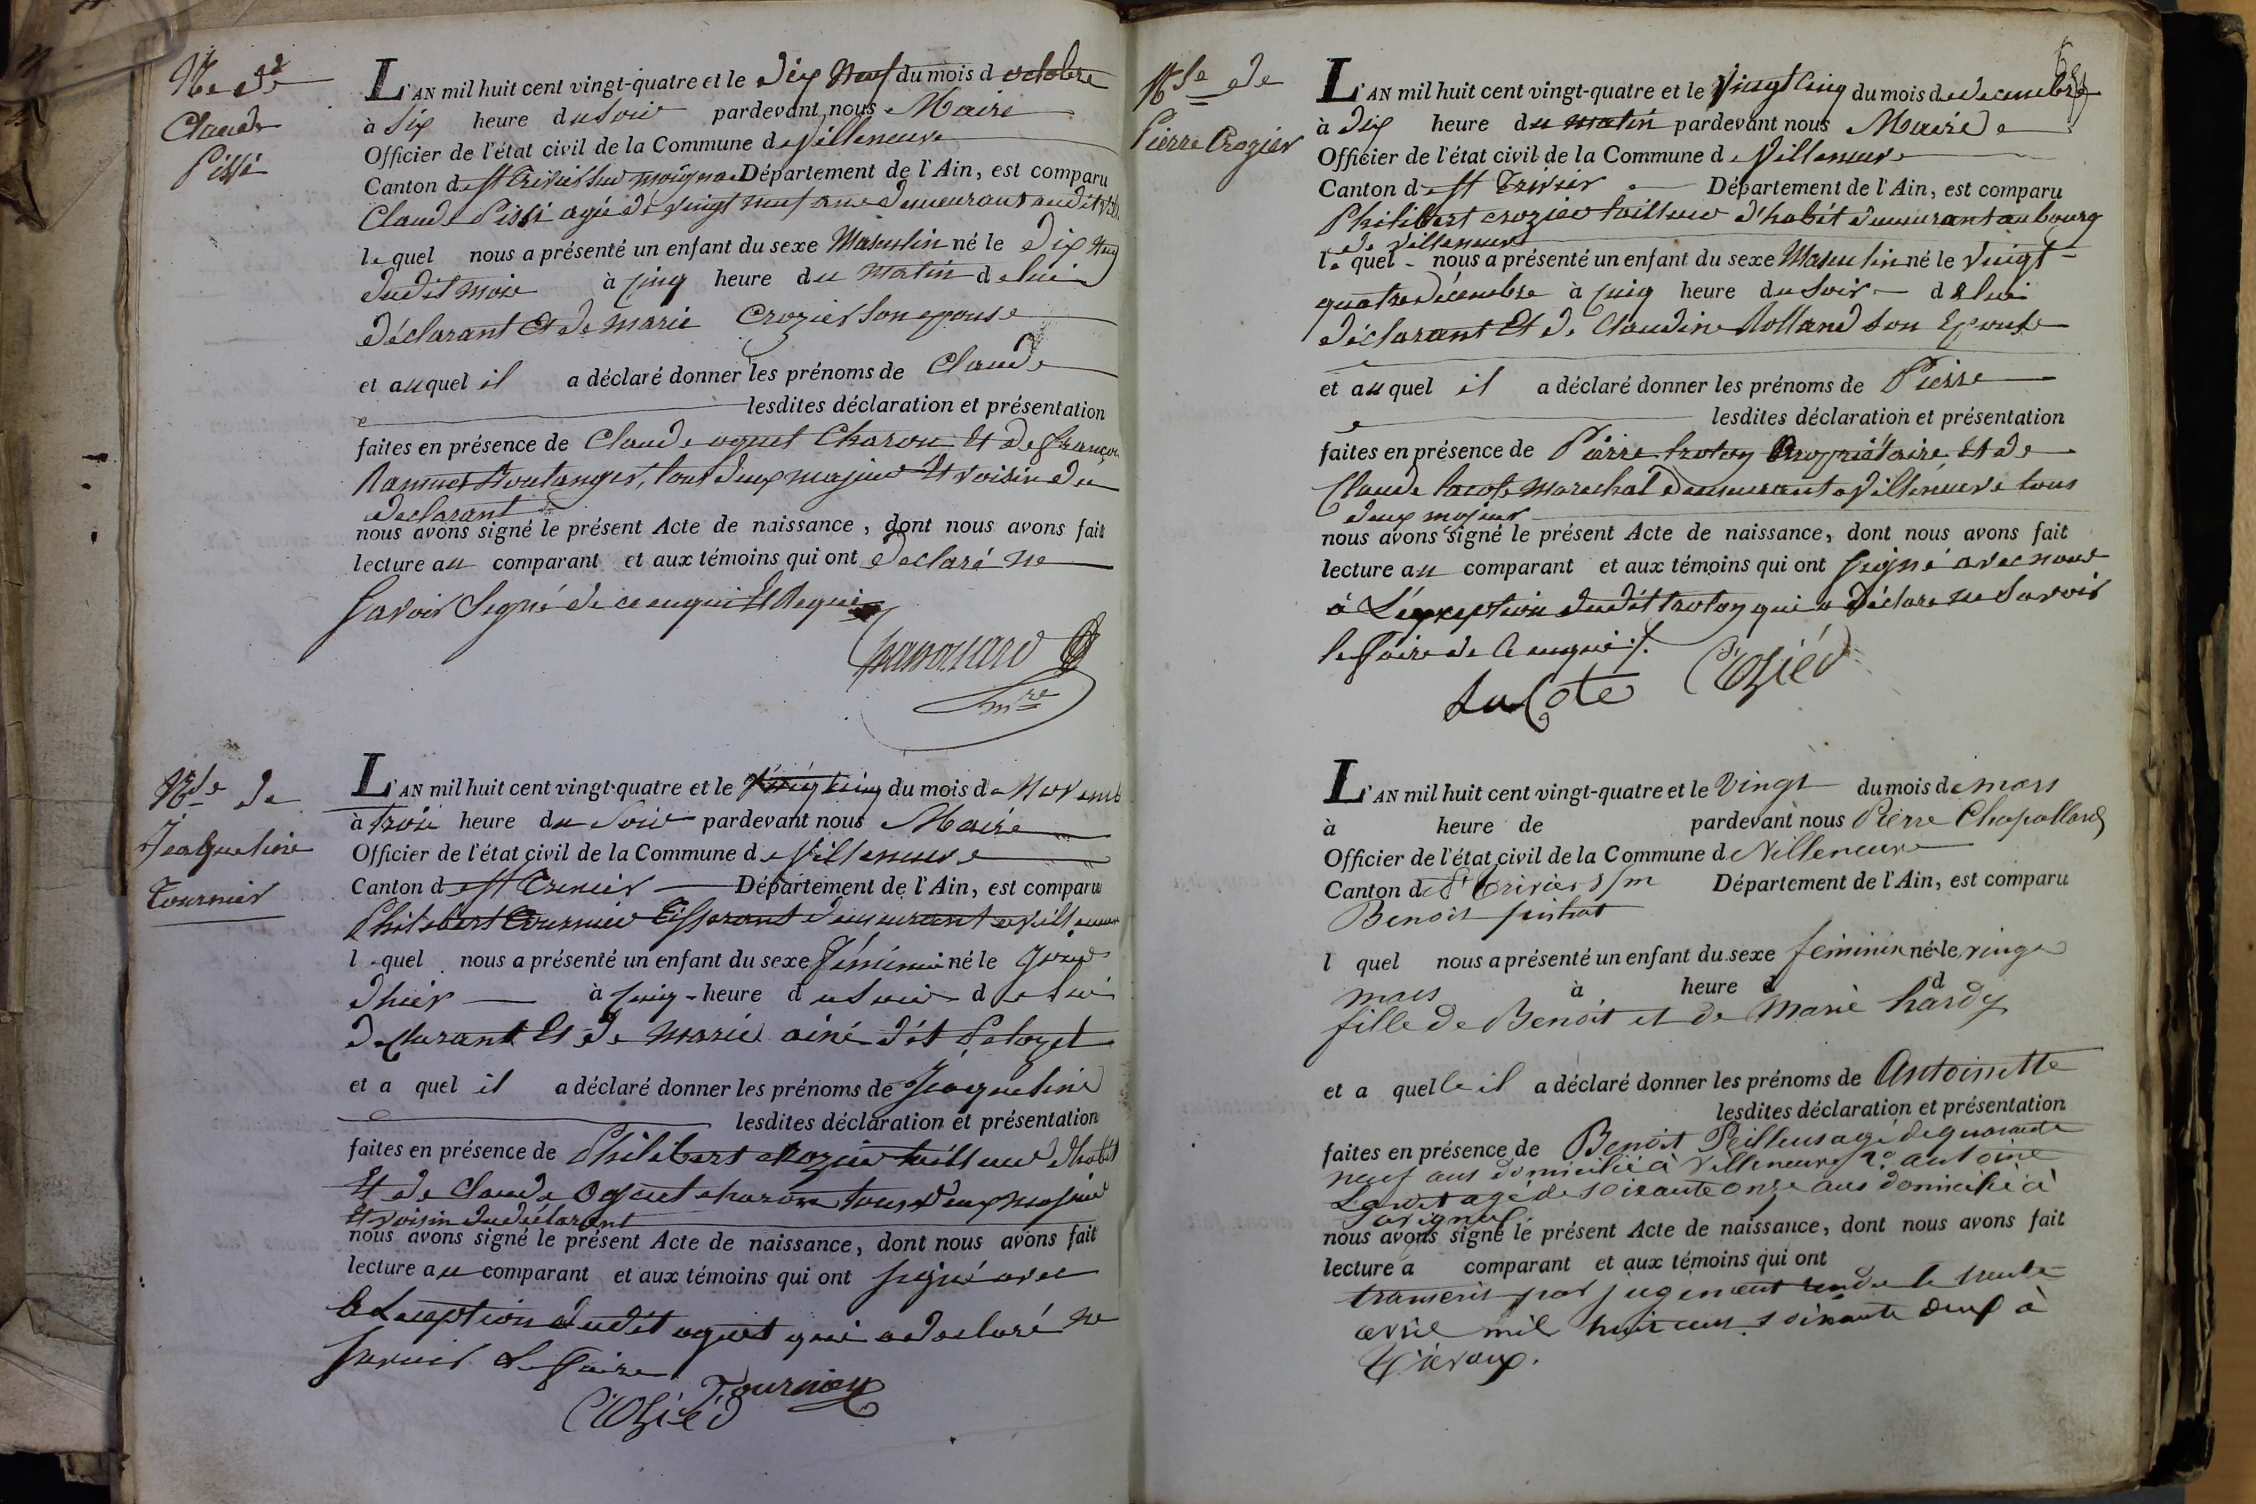 Claude
Pissi
L'AN mil huit cent vingt-quatre et le dix neuf du mois d octobre
à six heure du soir pardevant nous Maire
Officier de l'état civil de la Commune de Villeneuve
Canton de st Trivier sur moignans Département de l'Ain, est comparu
Claude Pissi agé de vingt neuf ans demeurant audit
le quel nous a présenté un enfant du sexe Masculin né le dix neuf
dudit mois à cinq heure du matin de lui
déclarant Et de marie Crozier son epouse
et auquel il a déclaré donner les prénoms de Claude
lesdites déclaration et présentation
faites en présence de Claude oguet Charon Et de françois
Boulanger, tous deux majeur Et voisin du
declarant
nous avons signé le présent Acte de naissance, dont nous avons fait
lecture au comparant et aux témoins qui ont declaré ne
savoir Signé de ce enquis Et Requis
mre
Nce de
Jeaqueline
Tournier
L'AN mil huit cent vingt-quatre et le vingt cinq du mois de Novemb
à trois heure du soir pardevant nous Maire
Officier de l'état civil de la Commune de Villeneuve
Canton de st Trivier Département de l'Ain, est comparu
Philibert Tournier Tisserant demeurant a villeneuve
l quel nous a présenté un enfant du sexe féminin né le jour
dhier à cinq heure du soir de lui
declarant Et de marie ainé
et a quel il a déclaré donner les prénoms de Jeaqueline
lesdites déclaration et présentation
faites en présence de Philibert crozier tailleur dhabit
Et de claude oguet charon tous deux majeur
Et voisin du déclarant
nous avons signé le présent Acte de naissance, dont nous avons fait
lecture au comparant et aux témoins qui ont signé avec
Exception dudit oguet qui a declaré ne
savoir Le faire
Tournier
Crozier
Nce de
Pierre Crozier
L'AN mil huit cent vingt-quatre et le vingt cinq du mois de decembre
à dix heure du matin pardevant nous Maire de
Officier de l'état civil de la Commune de Villeneuve
Canton de st Trivier Département de l'Ain, est comparu
Philibert crozier tailleur d'habit demeurant au bourg
de villeneuve
le quel nous a présenté un enfant du sexe Masculin né le vingt
quatre décembre à cinq heure du soir de lui
déclarant Et de Claudine Rolland son Epouse
et auquel il a déclaré donner les prénoms de Pierre
lesdites déclaration et présentation
faites en présence de Pierre troton Propriétaire Et de
Claude lacote marechal demeurant a villeneuve tous
deux majeur
nous avons signé le présent Acte de naissance, dont nous avons fait
lecture au comparant et aux témoins qui ont signé avec nous
à L'exception dudit troton qui a déclaré ne savoir
le faire de ce enquis
LaCote Crozier
L'AN mil huit cent vingt-quatre et le vingt du mois de mars
à heure de pardevant nous Pierre Chapolland
Officier de l'état civil de la Commune de Villeneuve
Canton de St Triviers s/m Département de l'Ain, est comparu
Benoit
l quel nous a présenté un enfant du sexe feminin né le vingt
mars à heure d
fille de Benoit et de Marie hardy
et a quelle il a déclaré donner les prénoms de Antoinette
lesdites déclaration et présentation
faites en présence de Benoit Peilleus agé de quarante
neuf ans domicilié à villeneuve 2o antoine
agé de soixante onze ans domicilié à
Savigneux
nous avons signé le présent Acte de naissance, dont nous avons fait
lecture a comparant et aux témoins qui ont
transcrit par jugement rendu le trente
avril mil huit cent soixante deux à
Trévoux.